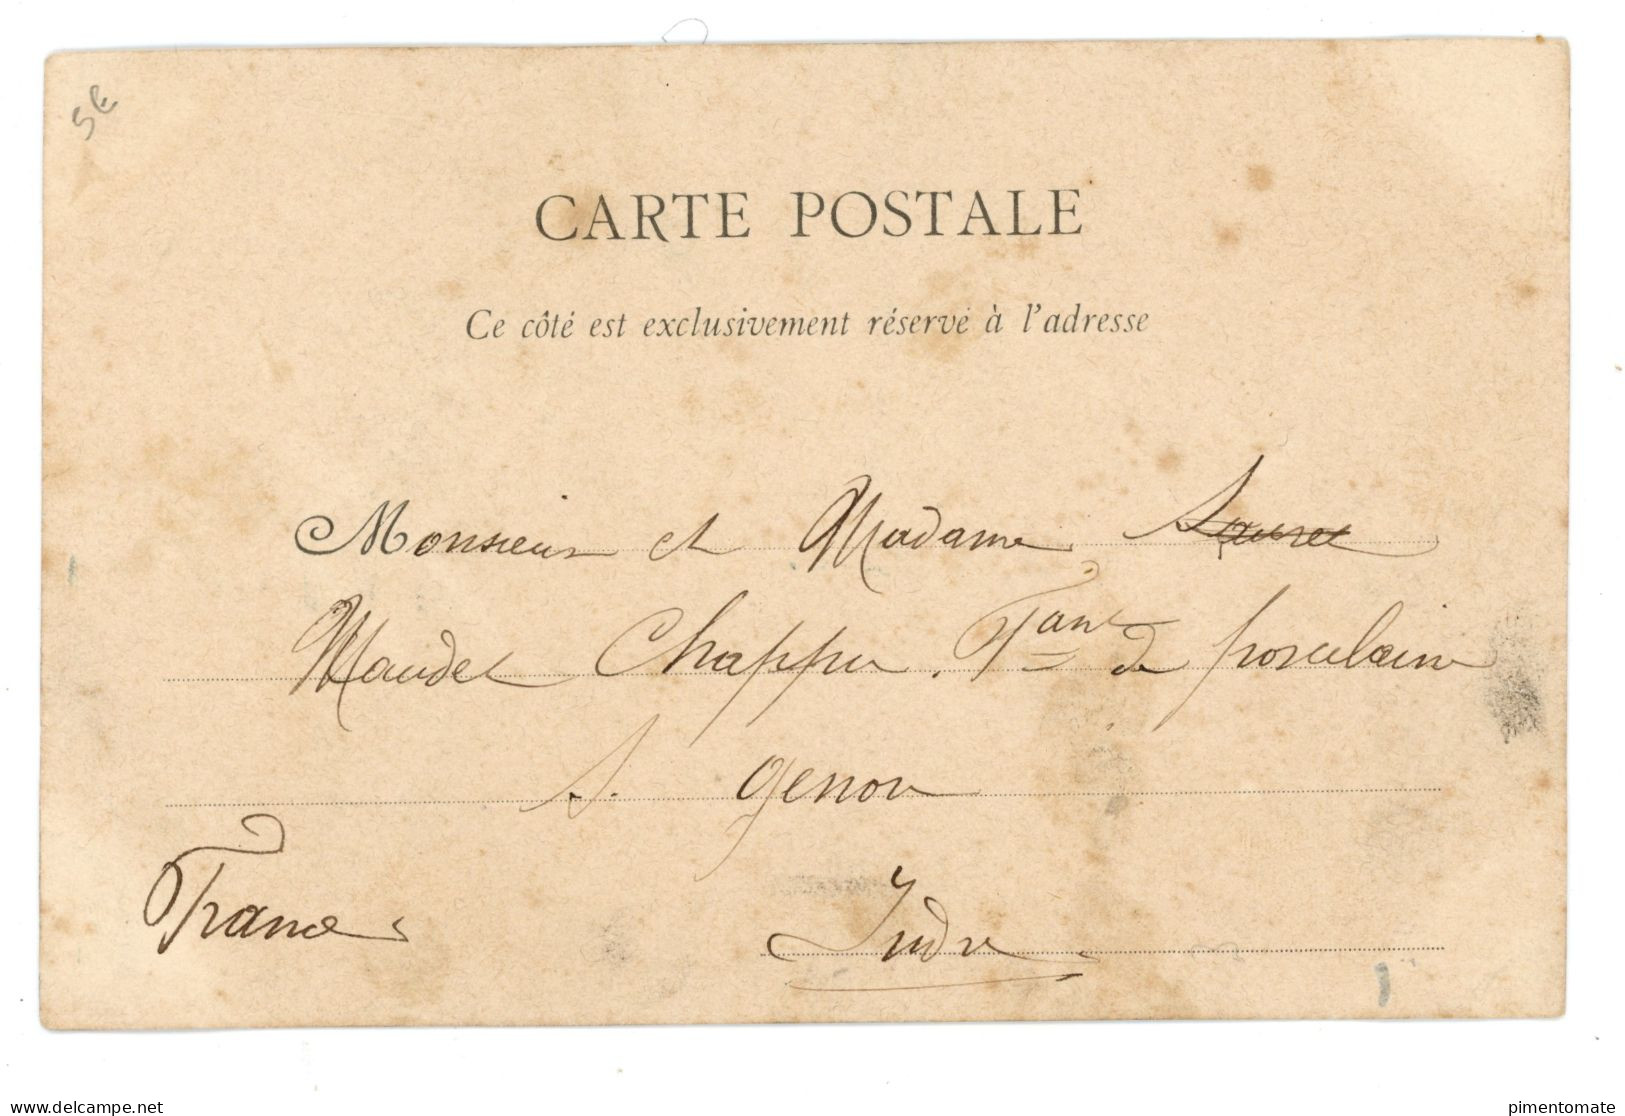 5€
CARTE POSTALE
Ce côté est exclusivement réservé à l'adresse
Monsieur et Madame
Maudet Chappu. Fant de porcelaine
S. Genou
France
Indre
www.delcampe.net
pimentomate